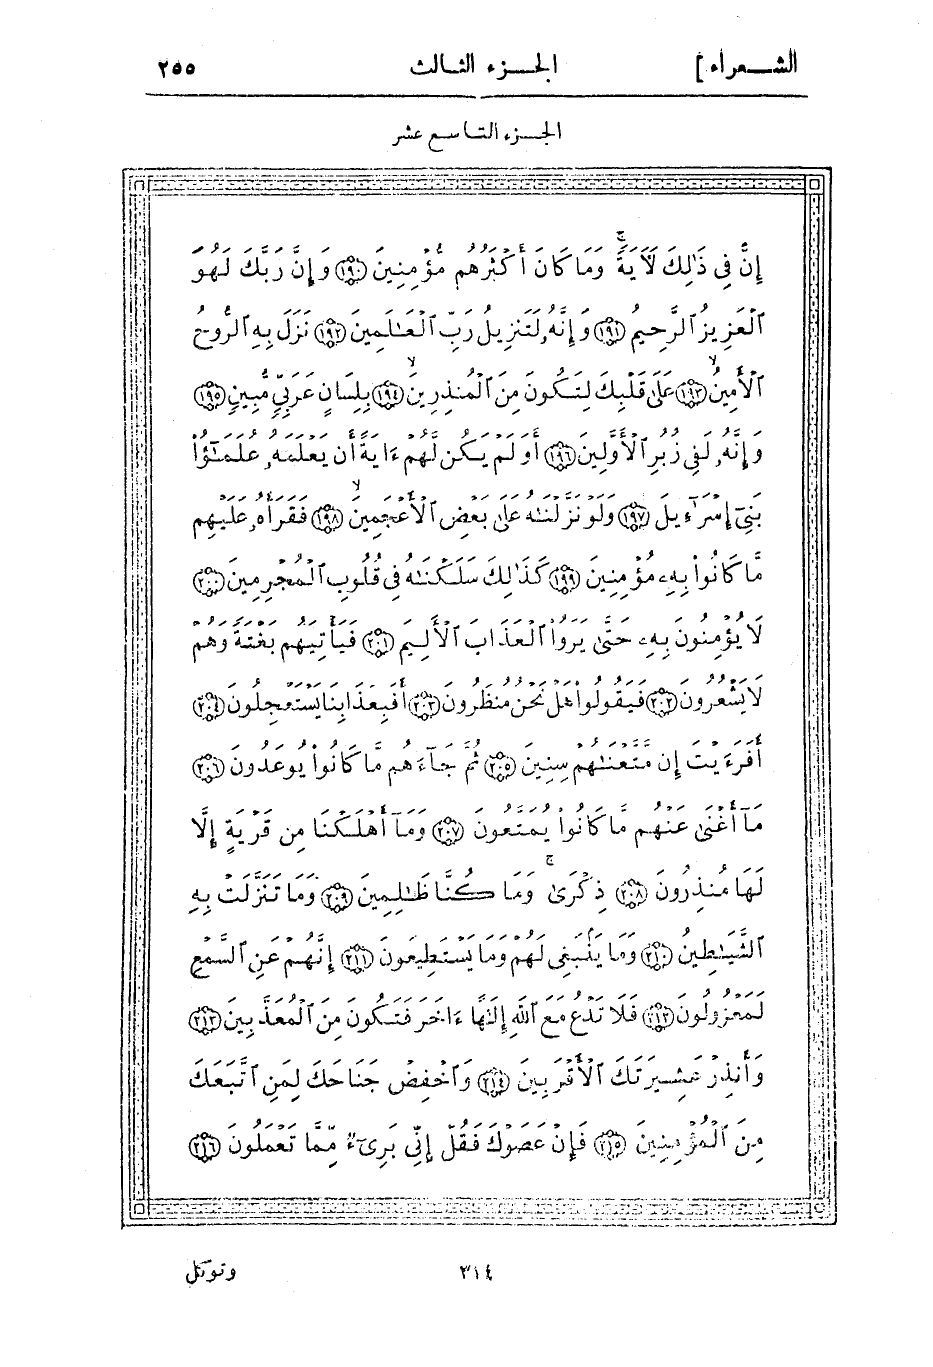 الشعراء] الجزء الثالث ٢٥٥
الجزء التاسع عشر
إِنَّ فِي ذَٰلِكَ لَآيَةً ۚ وَمَا كَانَ أَكْثَرُهُم مُّؤْمِنِينَ ﴿١٩٠﴾ وَإِنَّ رَبَّكَ لَهُوَ
ٱلْعَزِيزُ ٱلرَّحِيمُ ﴿١٩١﴾ وَإِنَّهُۥ لَتَنزِيلُ رَبِّ ٱلْعَـٰلَمِينَ ﴿١٩٢﴾ نَزَلَ بِهِ ٱلرُّوحُ
ٱلْأَمِينُ ﴿١٩٣﴾ عَلَىٰ قَلْبِكَ لِتَكُونَ مِنَ ٱلْمُنذِرِينَ ﴿١٩٤﴾ بِلِسَانٍ عَرَبِيٍّ مُّبِينٍ ﴿١٩٥﴾
وَإِنَّهُۥ لَفِي زُبُرِ ٱلْأَوَّلِينَ ﴿١٩٦﴾ أَوَلَمْ يَكُن لَّهُمْ ءَايَةً أَن يَعْلَمَهُۥ عُلَمَـٰٓؤُا۟
بَنِىٓ إِسْرَٰٓءِيلَ ﴿١٩٧﴾ وَلَوْ نَزَّلْنَـٰهُ عَلَىٰ بَعْضِ ٱلْأَعْجَمِينَ ﴿١٩٨﴾ فَقَرَأَهُۥ عَلَيْهِم
مَّا كَانُوا۟ بِهِۦ مُؤْمِنِينَ ﴿١٩٩﴾ كَذَٰلِكَ سَلَكْنَـٰهُ فِي قُلُوبِ ٱلْمُجْرِمِينَ ﴿٢٠٠﴾
لَا يُؤْمِنُونَ بِهِۦ حَتَّىٰ يَرَوُا۟ ٱلْعَذَابَ ٱلْأَلِيمَ ﴿٢٠١﴾ فَيَأْتِيَهُم بَغْتَةً وَهُمْ
لَا يَشْعُرُونَ ﴿٢٠٢﴾ فَيَقُولُوا۟ هَلْ نَحْنُ مُنظَرُونَ ﴿٢٠٣﴾ أَفَبِعَذَابِنَا يَسْتَعْجِلُونَ ﴿٢٠٤﴾
أَفَرَءَيْتَ إِن مَّتَّعْنَـٰهُمْ سِنِينَ ﴿٢٠٥﴾ ثُمَّ جَآءَهُم مَّا كَانُوا۟ يُوعَدُونَ ﴿٢٠٦﴾
مَآ أَغْنَىٰ عَنْهُم مَّا كَانُوا۟ يُمَتَّعُونَ ﴿٢٠٧﴾ وَمَآ أَهْلَكْنَا مِن قَرْيَةٍ إِلَّا
لَهَا مُنذِرُونَ ﴿٢٠٨﴾ ذِكْرَىٰ ۚ وَمَا كُنَّا ظَـٰلِمِينَ ﴿٢٠٩﴾ وَمَا تَنَزَّلَتْ بِهِ
ٱلشَّيَـٰطِينُ ﴿٢١٠﴾ وَمَا يَنۢبَغِي لَهُمْ وَمَا يَسْتَطِيعُونَ ﴿٢١١﴾ إِنَّهُمْ عَنِ ٱلسَّمْعِ
لَمَعْزُولُونَ ﴿٢١٢﴾ فَلَا تَدْعُ مَعَ ٱللَّهِ إِلَـٰهًا ءَاخَرَ فَتَكُونَ مِنَ ٱلْمُعَذَّبِينَ ﴿٢١٣﴾
وَأَنذِرْ عَشِيرَتَكَ ٱلْأَقْرَبِينَ ﴿٢١٤﴾ وَٱخْفِضْ جَنَاحَكَ لِمَنِ ٱتَّبَعَكَ
مِنَ ٱلْمُؤْمِنِينَ ﴿٢١٥﴾ فَإِنْ عَصَوْكَ فَقُلْ إِنِّي بَرِيٓءٌ مِّمَّا تَعْمَلُونَ ﴿٢١٦﴾
٣١٤ وتوكل